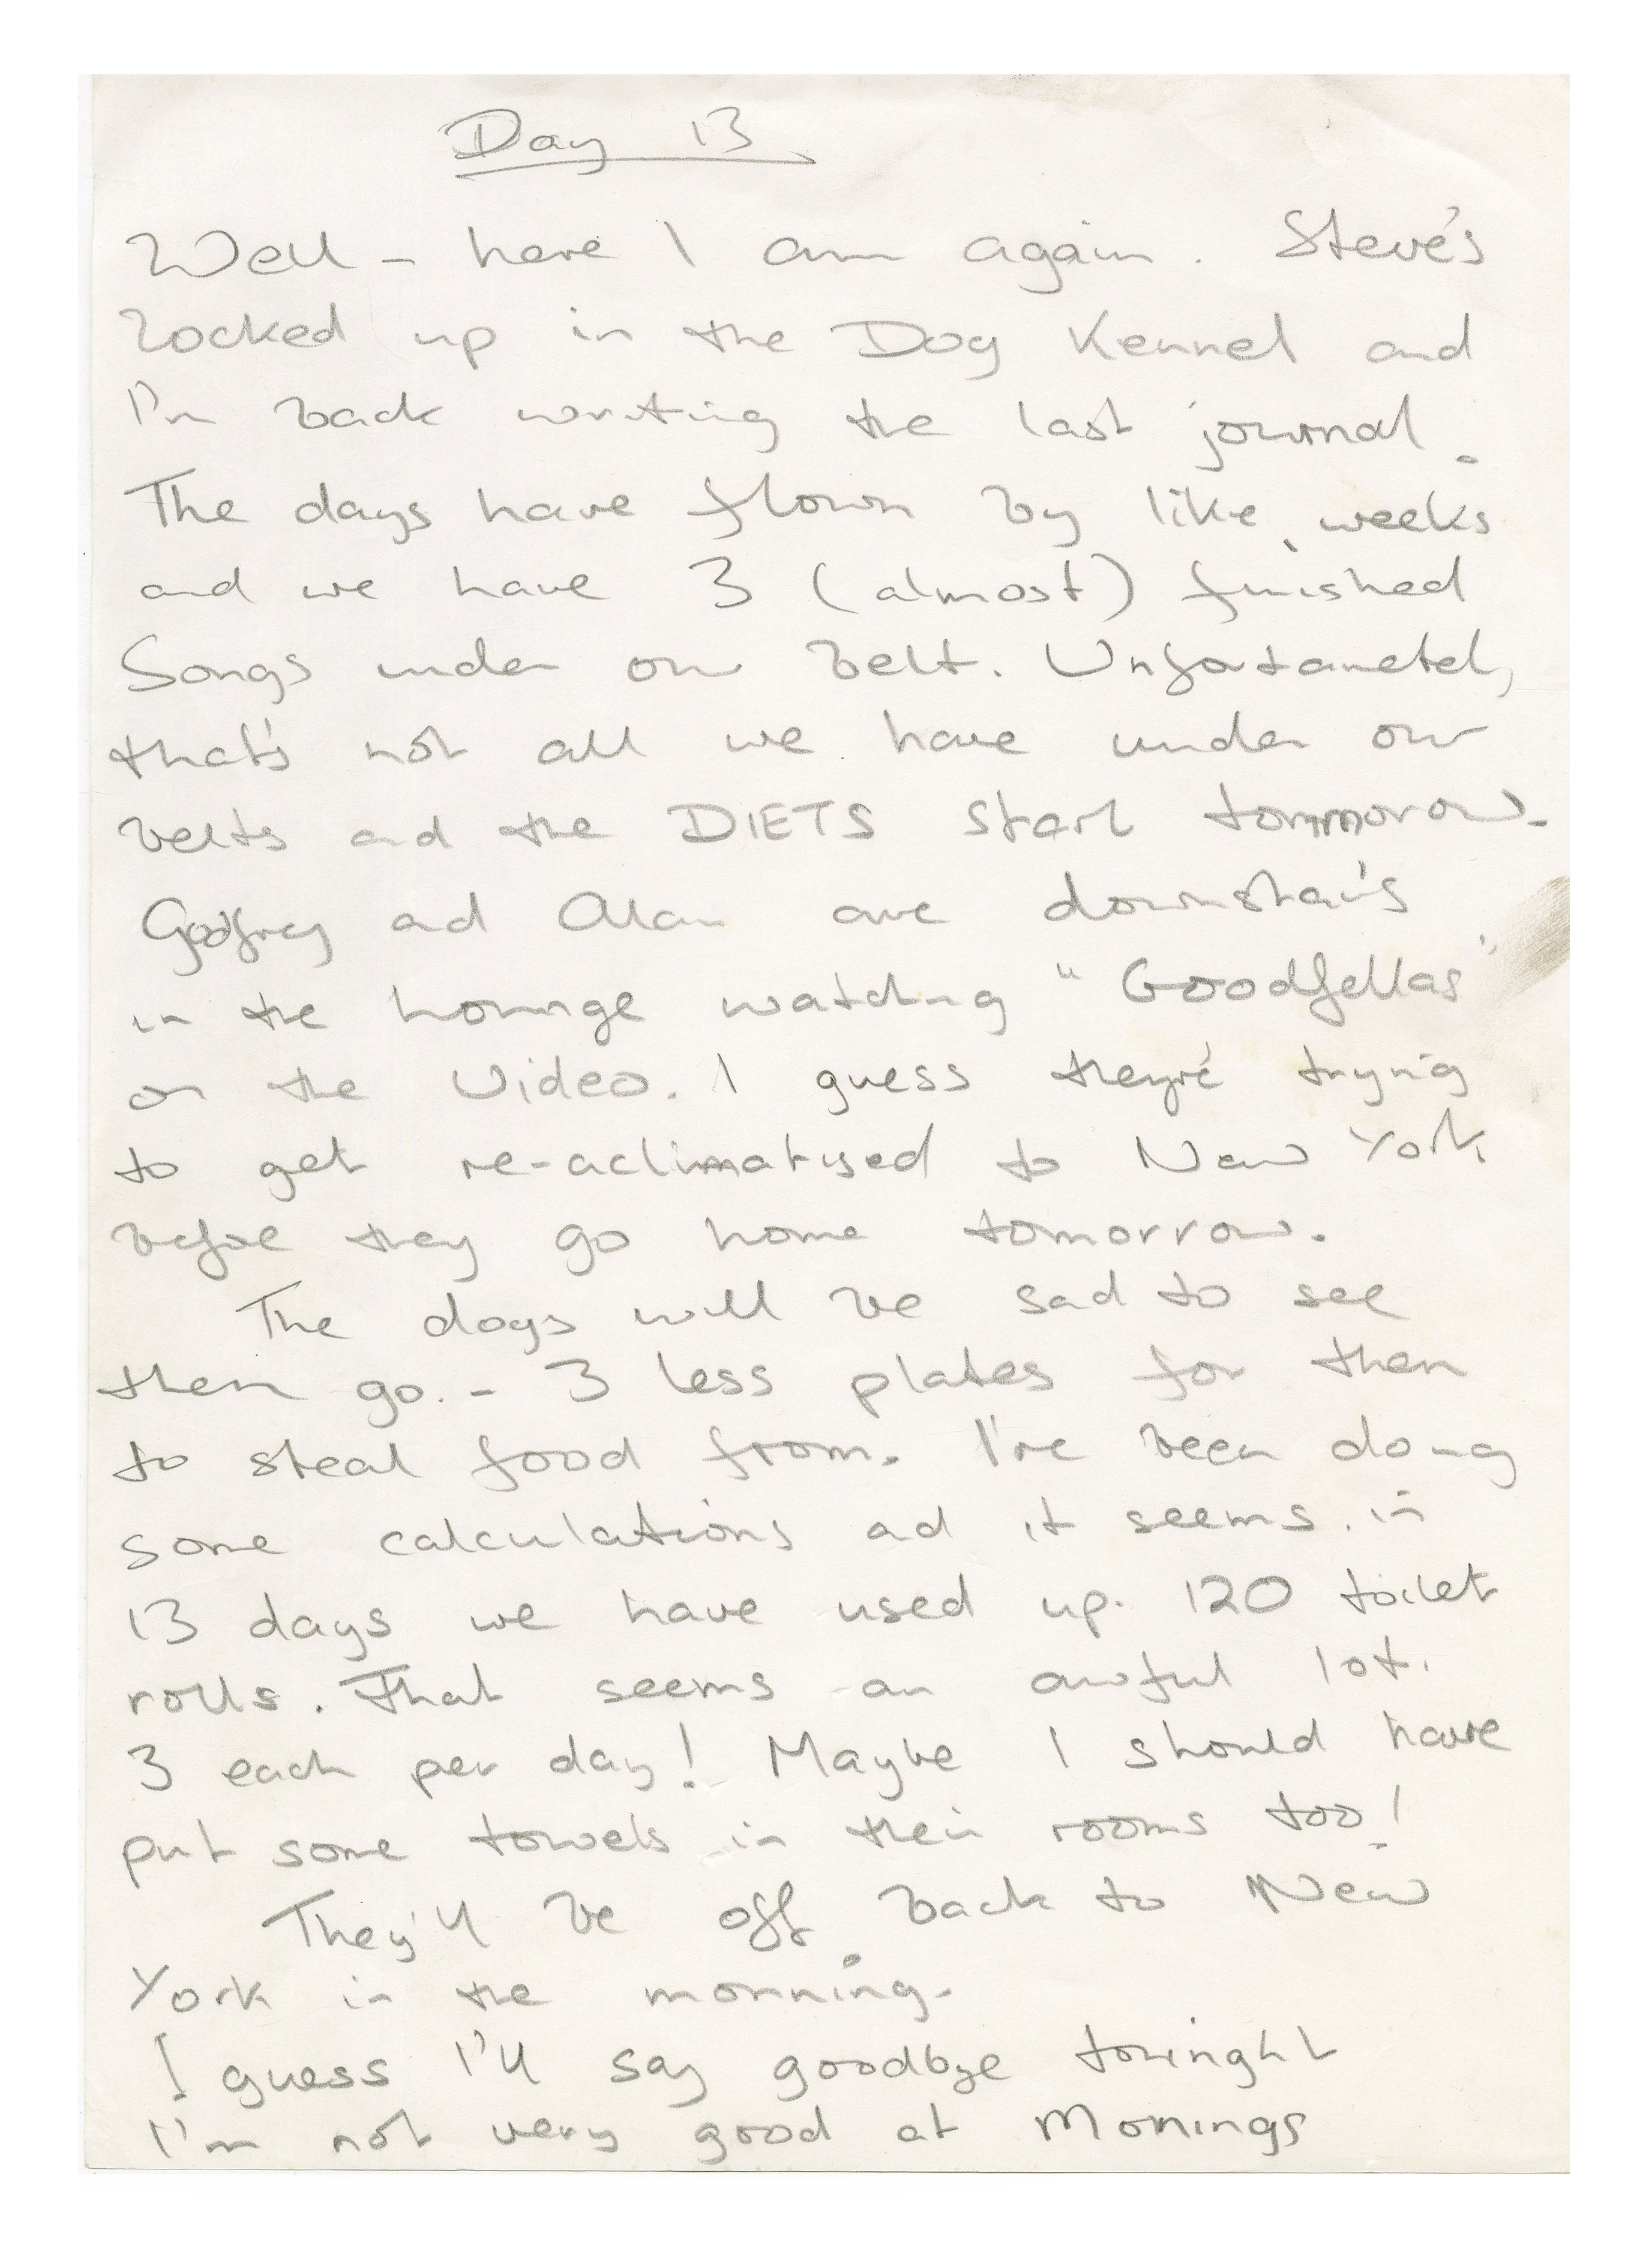 Day 13
Well - here I am again. Steve's
locked up in the Dog Kennel and
I'm back writing the last journal.
The days have flown by like weeks
and we have 3 (almost) finished
Songs under our belt. Unfortanetely
that's not all we have under our
belts and the DIETS start tommorow.
Godfrey and Alan are downstairs
in the lounge watching "Goodfellas"
on the Video. I guess they're trying
to get re-aclimatised to New York
before they go home tomorrow.
The dogs will be sad to see
them go. - 3 less plates for them
to steal food from. I've been doing
some calculations and it seems in
13 days we have used up 120 toilet
rolls. That seems an awful lot.
3 each per day! Maybe I should have
put some towels in their rooms too!
They'll be off back to New
York in the morning.
I guess I'll say goodbye toninght
I'm not very good at Mornings